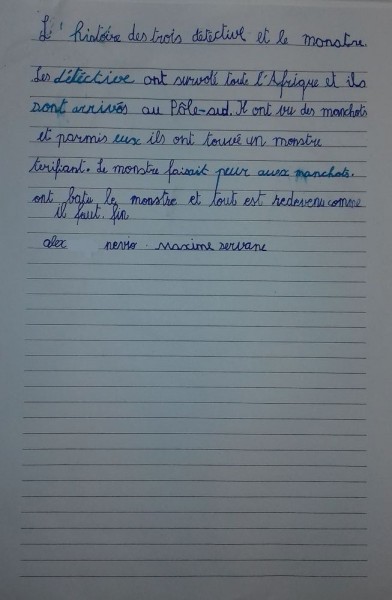 L'histoire des trois détective et le monstre.
Les détéctive ont survolé toute l'Afrique et ils
sont arrivés au Pôle-sud. Il ont vu des manchots
et parmis eux ils ont touvé un monstre
terifiant. Le monstre faisait peur aux manchots.
ont batu le monstre et tout est redevenu comme
il faut. fin
alex nevio maxime servane